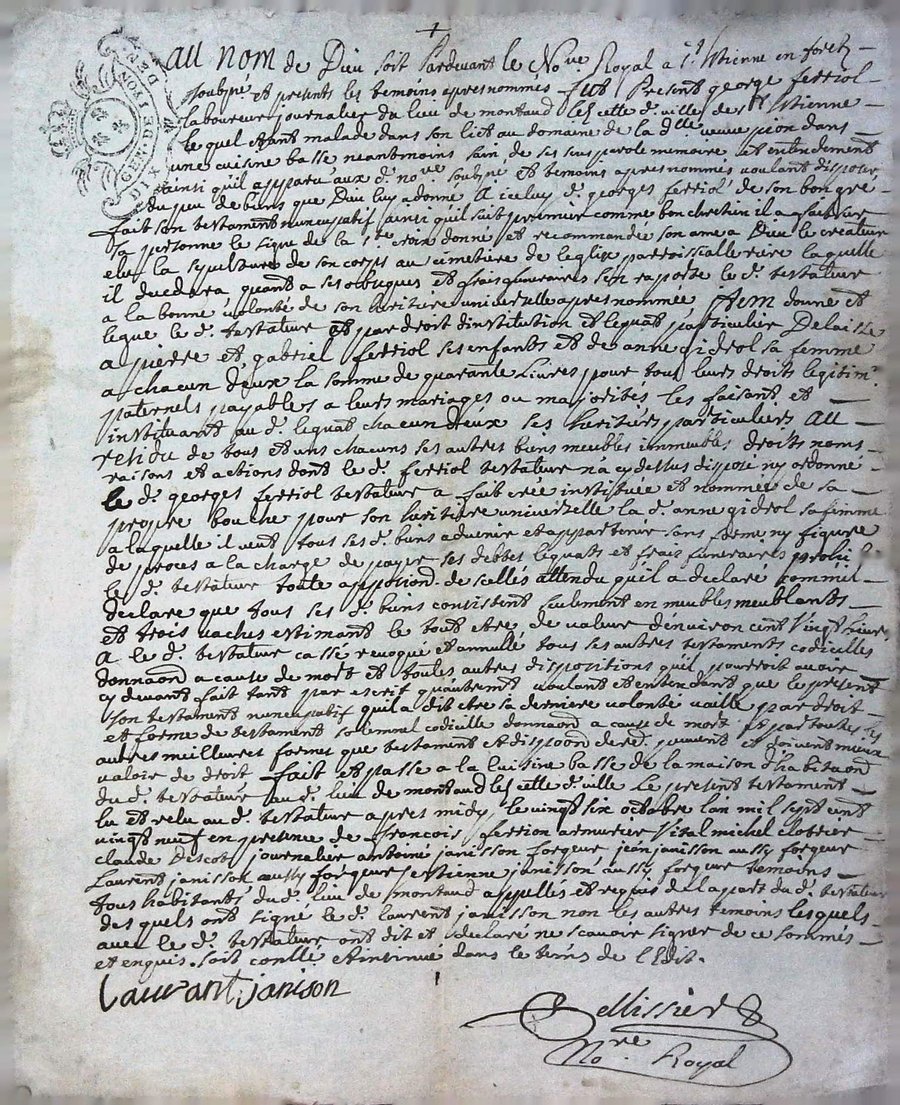 GEN. DE LION DEN
DIX
au nom de Dieu soit Pardevant le Nore. Royal a st. Etienne en foretz
soubne. et presents les temoins apres nommés fut Present george ferriol
laboureur journalier du lieu de montaud les cette d. ville de st Etienne
le quel etant malade dans son lict au domaine de la dlle veuve pion dans
une cuisne basse neantmoins sain de ses sens parole memoire et entendement
ainsi quil apparu aux d. nore soubne et temoins apres nommés voulant disposer
du peu de biens que Dieu luy a donné A iceluy d. georges ferriol de son bon gré
fait son testament nuncupatif ainsi quil suit premier comme bon chretien il a fait sur
sa personne le signe de la ste croix donné et recommandée son ame a Dieu le createur
eleu la sepulture de son corps au cimetiere de leglise parroissialle riere laquelle
il decedera, quant a ses obseques et frais funeraires sen raporte le d. testateur
a la bonne volonté de son heritiere universelle apres nommée, Item donne et
legue le d. testateur et par droit dinstitution et legat particulier Delaisse
a pierre et gabriel ferriol ses enfants et de anne gidrol sa femme
a chacun d'eux la somme de quarante Livres pour tous leurs droits legitim.
paternels payables a leurs mariages ou majorités les faisant et
instituant au d. legat chacun d'eux ses heritiers particuliers au
residu de tous et uns chacuns ses autres biens meubles immeubles droits noms
raisons et actions dont le d. ferriol testateur na cy dessus disposé ny ordonné
le d. georges ferriol testateur a fait créé instituée et nommée de sa
propre bouche pour son heritiere universelle la d. anne gidrol sa femme
a laquelle il veut tous ses d. biens advenir et appartenir sans forme ny figure
de proces a la charge de payer ses debtes legats et frais funeraires
le d. testateur toute apposiond. de scellés attendu quil a declaré comme il
declare que tous ses d. biens consistent seulment en meubles meublants
et trois vaches estimant le tout etre de valeur denviron cent vingt livres
A le d. testateur cassé revoqué et annullé tous ses autres testaments codicilles
donnaond a cause de mort et toutes autres dispositions quil pourroit avoir
cy devant fait tant par escrit quautrement voulant et entendant que le present
son testament nuncupatif quil a dit etre sa derniere volonté vaille par droit
et forme de testament solemnel codicille donnaond a cause de mort et par toutes
autres meilleures formes que testament et disposond de peuvent et doivent mieux
valoir de droit fait et passé a la cuisine basse de la maison d'habitaond
du d. testateur au d. lieu de montaud les cette d. ville Le present testament
lu et relu au d. testateur apres midy le vingt six octobre lan mil sept cent
vingt neuf en presence de francois ferrion armurier Vital michel clottier
claude Descot journalier antoine janisson forgeur jean janisson aussy forgeur
Laurent janisson aussy forgeur et Etienne janisson aussy forgeur temoins
tous habitants du d. lieu de montaud appellés et requis de la part du d. testateur
des quels ont signé le d. laurent janisson non les autres temoins lesquels
avec le d. testateur ont dit et declaré ne scavoir signer de ce sommés
et enquis. soit conllé et insinué dans le tems de l'Edit.
Laurant janison
ellissier
Nore. Royal